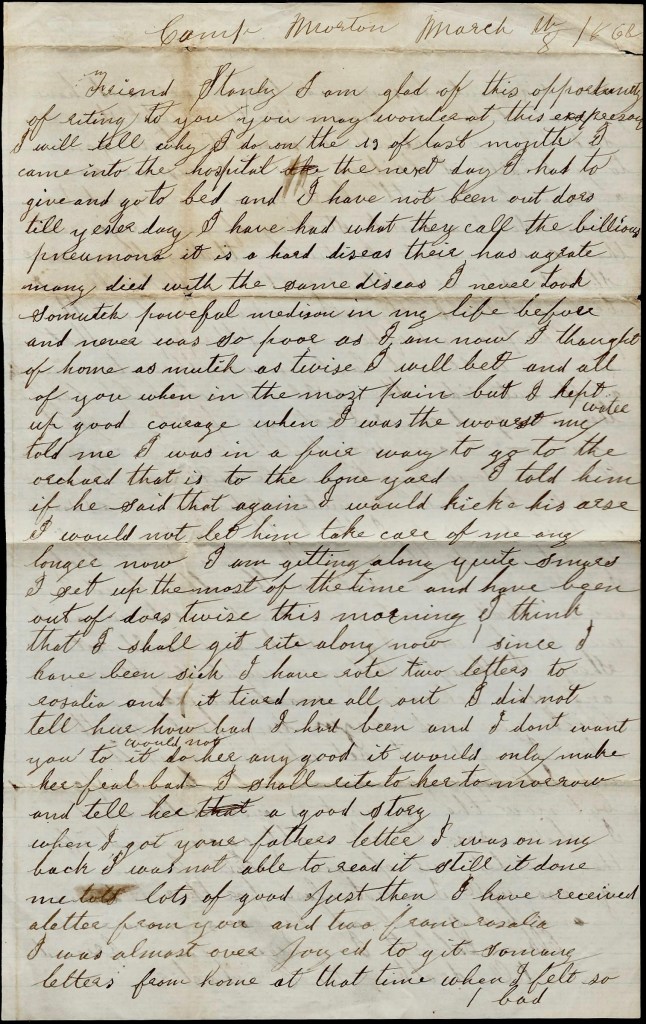 Camp Morton March th 8 186
Friend Stanly I am glad of this opportunity
of riting to you you may wonder at this expresion
I will tell why I do on the 19 of last month I
came into the hospital the the next day I had to
give and go to bed and I have not been out dors
till yester day I have had what they call the billious
pneumona it is a hard diseas their has agrate
many died with the same diseas I never took
somutch powerful medison in my life before
and never was so poor as I am now I thought
of home as mutch as twise I will bet and all
of you when in the most pain but I kept
up good courage when I was the wourst my waiter
told me I was in a fair way to go to the
orchard that is to the bone yard I told him
if he said that again I would kick his arse
I would not let him take care of me any
longer now I am gitting along quite
I set up the most of the time and have been
out of dors twise this morning I think
that I shall git rite along now since I
have been sick I have rote two letters to
rosalia and it tired me all out I did not
tell hur how bad I had been and I dont want
you to it would not do her any good it would only make
her feal bad I shall rite to her to morrow
and tell her that a good story
when I got your fathers letter I was on my
back I was not able to read it still it done
me lots of good Just then I have received
aletter from you and two from rosalia
I was almost over joyed to git somany
letters from home at that time when I felt so
bad